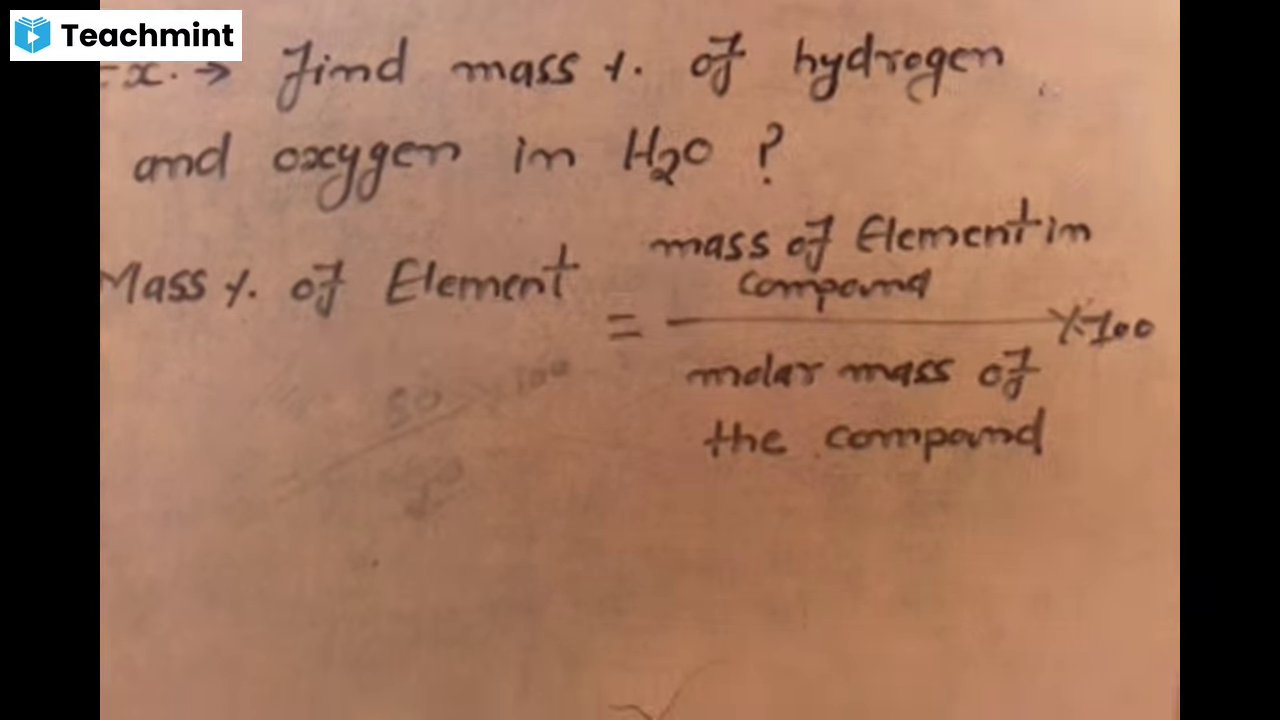 Teachmint
Ex. → Find mass %. of hydrogen
and oxygen in H2O ?
Mass %. of Element = mass of Element in
compound
×100
molar mass of
the compound
50 × 100